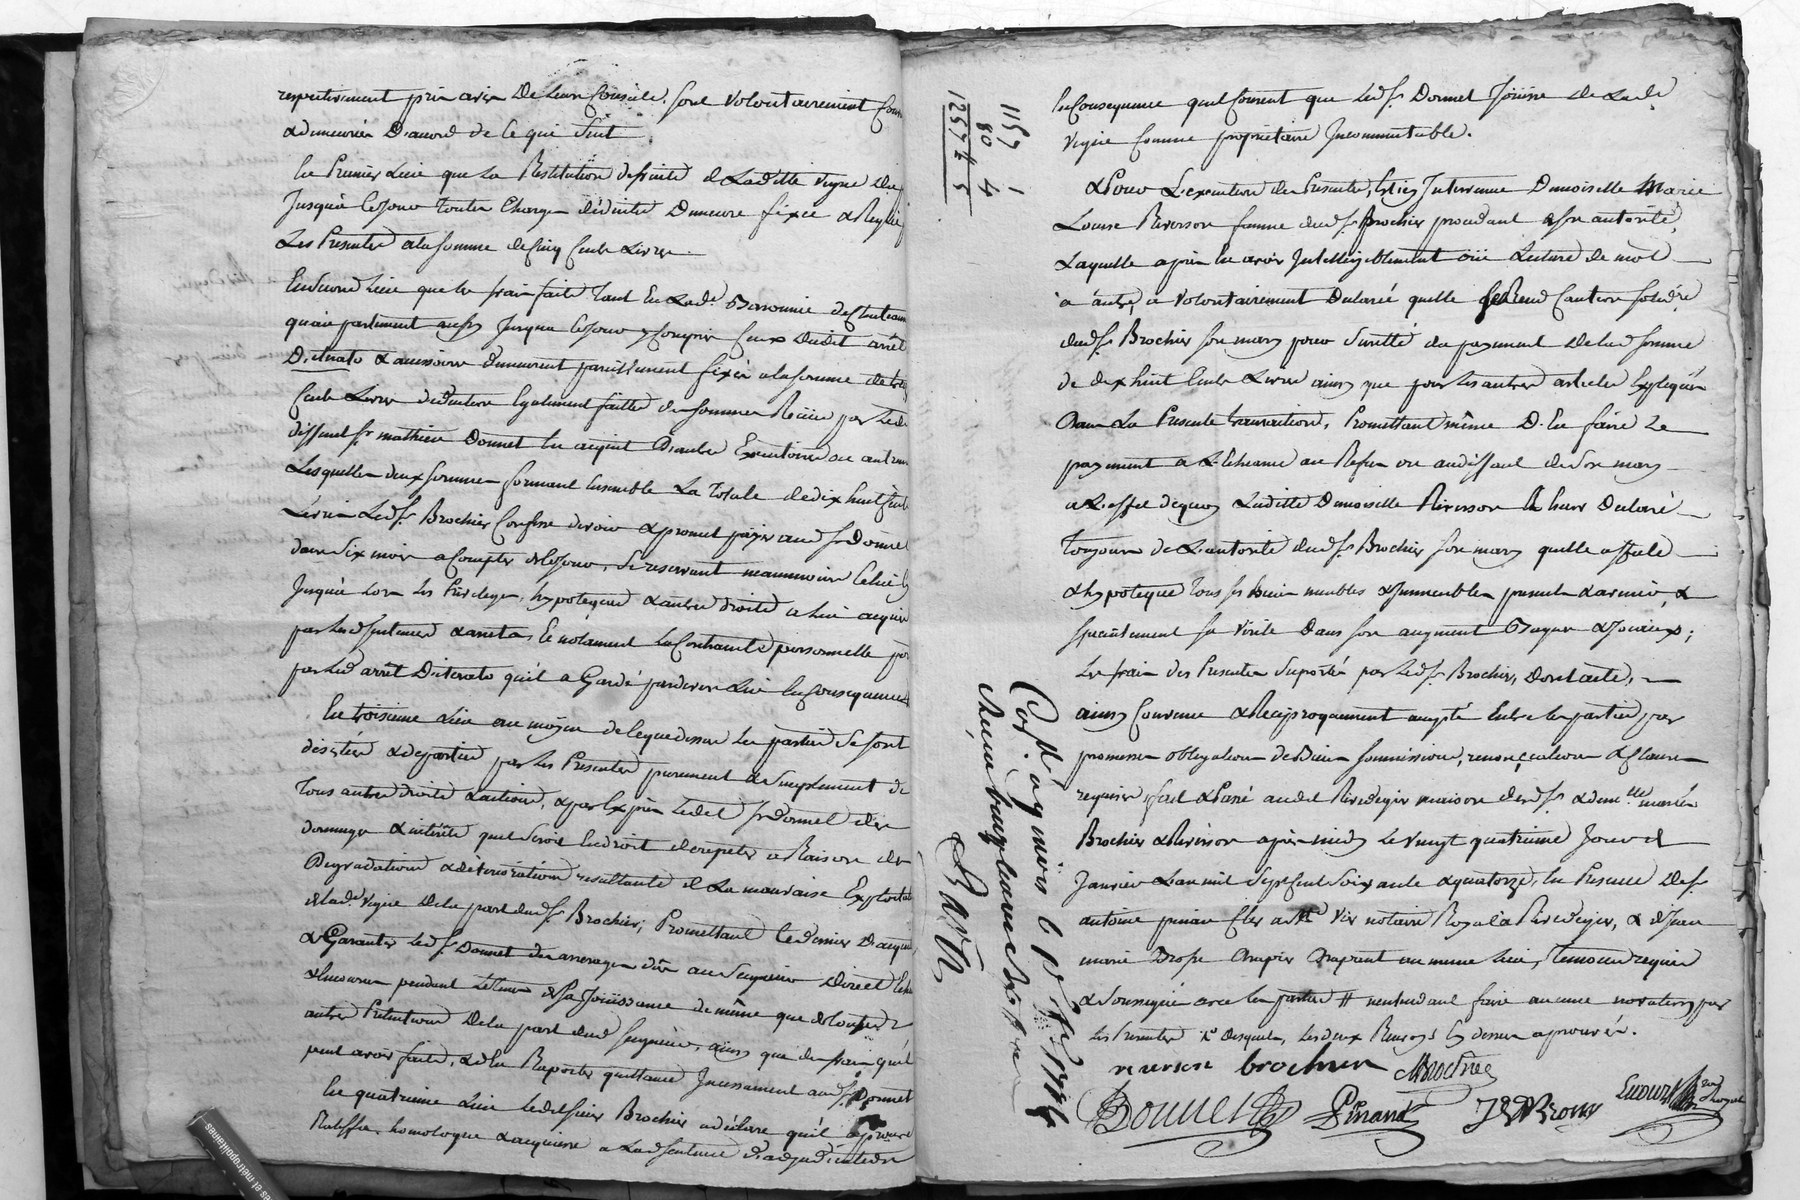 respectivement pris avis De leurs Conseils, sont volontairement
& demeurés D'accord de ce qui suit
En Premier Lieu que La Restitution des fruits de Laditte vigne
Jusqu'à ce Jour toutes Charges déduittes Demeure fixée & Reglée
Les Presentes a la somme de Cinq Cents Livres
En second Lieu que les frais faits tant En Lad.e Baronnie de
qu'au parlement aussy Jusqu'a ce Jour y Compris Ceux Dudit arrêt
D'iterato & accessoires demeurent pareillement fixés a la somme de
Cents Livres deduction Egalement faitte des sommes Reçües par led.
deffunt Sr mathieu Donnet En acquit D'autres Executoires ou autrement
Lesquelles deux sommes formant Ensemble La Totale de dix huit Cents
Livres Led. Sr. Brochier Confesse devoir & promet payer aud. Sr Donnet
dans six mois a Compter de ce Jour, se reservant neanmoins Celui cy
Jusqu'à Lors Les Privileges, hypoteques & autres droits a lui acquis
par lesd. sentences & arrets Et notament La Contrainte personnelle
par led. arrêt D'iterato qu'il a Gardé pardevers Lui En Consequence
En troisieme Lieu au moyen de Ce que dessus les parties se sont
désistées & departies par les Presentes purement & simplement de
tous autres droits & actions, & par Exprès ledit Sr Donnet des
dommages & intérêts qu'il seroit En droit de repeter a Raison des
Degradations & déteriorations resultantes de La mauvaise Exploitation
de lad.e vigne de la part dud. Sr. Brochier; Promettant Ce dernier D'acquitter
& Garantir led. Sr. Donnet des arrerages dûs au Seigneur Direct
& Encourus pendant le tems de sa Joüissance de même que de toutes
autres Pretentions de la part dud. seigneur, ainsy que des frais qu'il
peut avoir faits, & d'En Raporter quittance Incessament aud. Sr. Donnet
En quatrieme Lieu ledit sieur Brochier a déclaré qu'il aprouve
Ratiffie, homologue & acquiesse a Lad. sentence d'adjudication
En Consequence qu'il Consent que led. Sr. Donnet Joüisse de Lad.e
vigne Comme propriétaire Incommutable.
1157 1
80 4
1237 tt 5
& Pour L'execution des Presentes, Est icy Intervenue Demoiselle Marie
Louise Reverson femme dud. Sr. Brochier procedant de son autorité,
Laquelle après En avoir Intelligiblement oüi Lecture de mot
à autre, a volontairement Declaré qu'elle se Rend Caution solidaire
dud. Sr. Brochier son mary pour sureté du payement de lad. somme
de dix huit Cents Livres ainsy que pour les autres articles Expliqués
Dans La Presente transaction, Promettant même D'En faire Le
payement a L'Echeance au Refus ou au deffaut de son mary
a L'effet de quoy Laditte Demoiselle Reverson a declaré
toujours de L'autorité dud. Sr. Brochier son mary qu'elle affecte
& hypoteque tous ses Biens meubles & Immeubles presents & avenir, &
specialement sa virile dans son augment Bagues & Joyaux;
Les frais des Presentes suportés par led. Sr. Brochier, Dont acte,
ainsy Convenu & Reciproquement accepté Entre les parties par
promesses obligations de Biens soumissions, renonçiations & Clauses
requises, fait & Passé audit Rivedegier maison desd. Sr. & dem.lle mariés
Brochier & Reverson après midy Le vingt quatrieme Jour de
Janvier L'an mil sept Cent soixante & quatorze, En Presence de Sr.
antoine pinaud Clerc a Me vier notaire Royal a Rivedegier, & de Jean
marie Bross Drapier Drapant au meme lieu, temoins requis
& soussignés avec les parties # n'entendant faire aucune novation par
Les Presentes desquels, Les deux Renvoys Cy dessus aprouvés.
reverson brochier MBrochier
Donnet Pinaud JMBross
Royal
Con.lé a le 1774